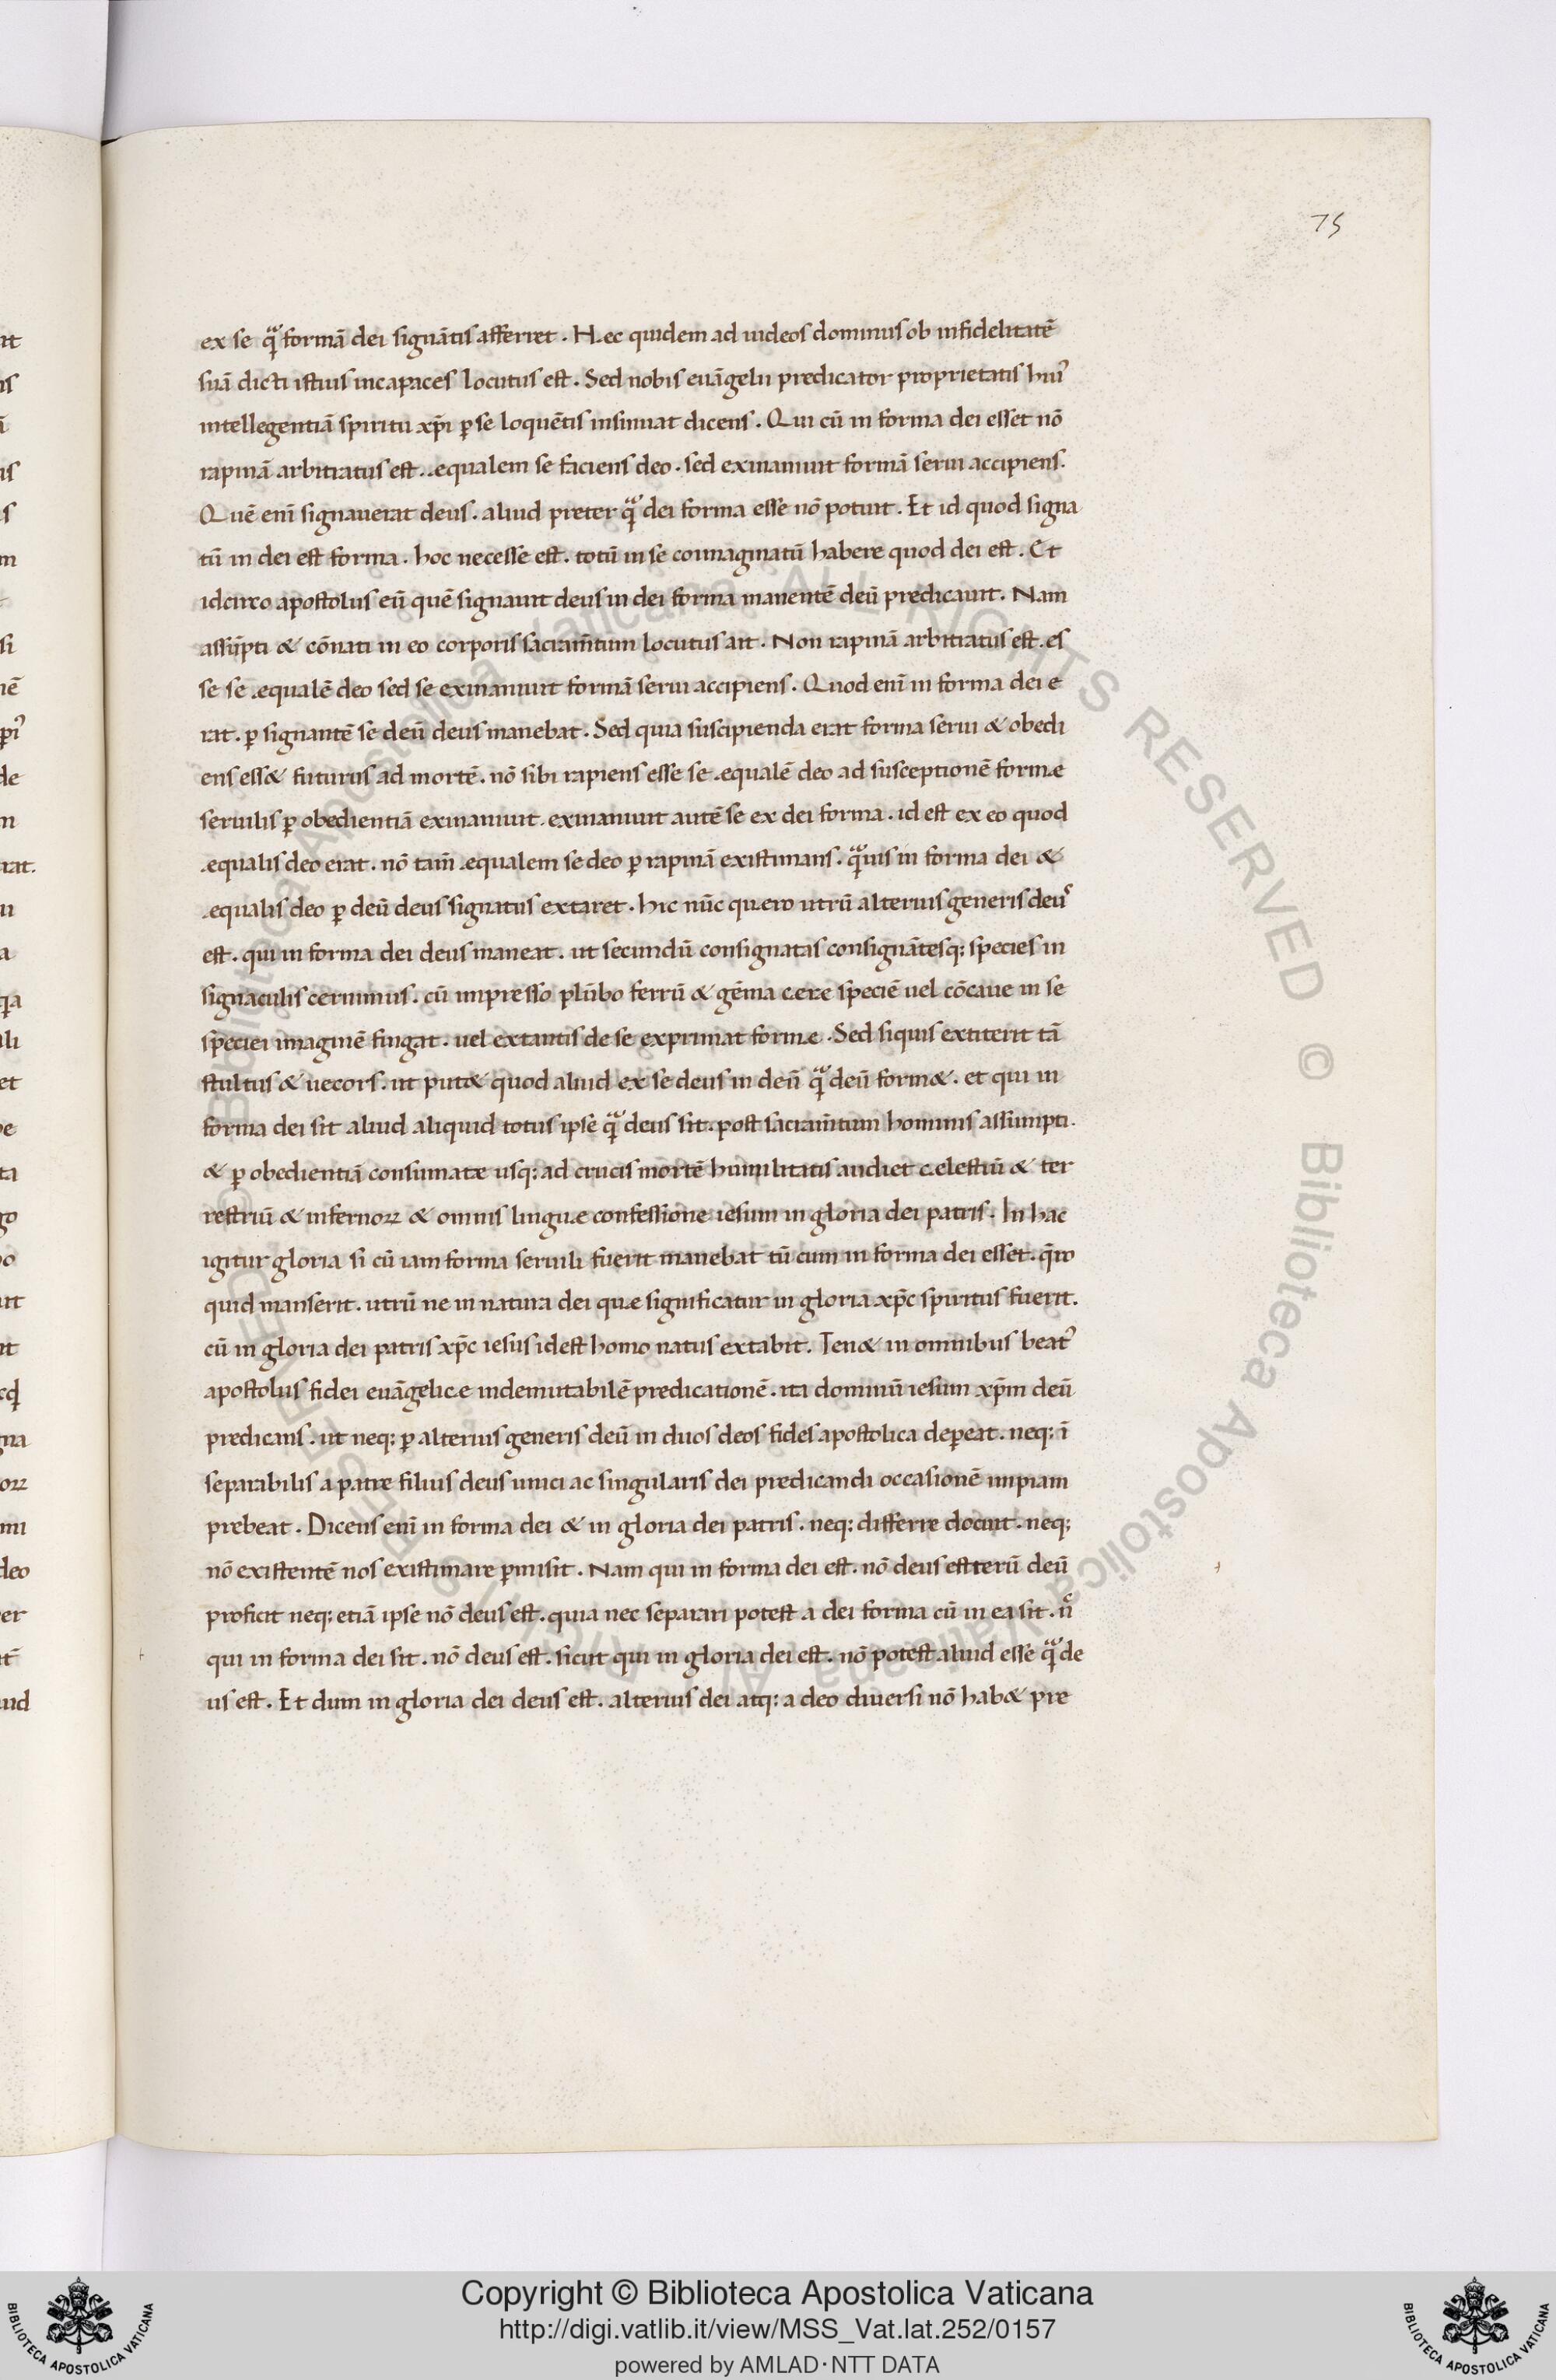 75
ex se qͣ̄ formā dei signātis afferret . Hęc quidem ad iudeos dominus ob infidelitatē
suā dicti istius incapaces locutus est . Sed nobis euāgelii predicator proprietatis huiꝰ
intellegentiā spiritu xp̄i ꝑ se loquētis insinuat dicens . Qui cū in forma dei esset nō
rapinā arbitratus est . ęqualem se faciens deo . sed exinaniuit formā serui accipiens .
Quē enī signauerat deus . aliud preter qͣ̄ dei forma esse nō potuit . Et id quod signa
tū in dei est forma . hoc necesse est . totū in se coimaginatū habere quod dei est . Et
idcirco apostolus eū quē signauit deus in dei forma manentē deū predicauit . Nam
assūpti & cōnati in eo corporis sacram̄tum locutus ait . Non rapinā arbitratus est . es
se se ęqualē deo sed se exinaniuit formā serui accipiens . Quod enī in forma dei e
rat . ꝑ signantē se deū deus manebat . Sed quia suscipienda erat forma serui & obedi
ens ess& futurus ad mortē . nō sibi rapiens esse se ęqualē deo ad susceptionē formę
seruilis ꝑ obedientiā exinaniuit . exinaniuit autē se ex dei forma . id est ex eo quod
ęqualis deo erat . nō tam̄ ęqualem se deo ꝑ rapinā existimans . qͣ̄uis in forma dei &
ęqualis deo ꝑ deū deus signatus extaret . hic nūc quęro utrū alterius generis deus
est . qui in forma dei deus maneat . ut secundū consignatas consignātesq; species in
signaculis cernimus . cū impresso plūbo ferrū & gēma cerę speciē uel cōcauę in se
speciei imaginē fingat . uel extantis de se exprimat formę . Sed siquis extiterit tā
stultus & uecors . ut put& quod aliud ex se deus in deū qͣ̄ deū form& . et qui in
forma dei sit aliud aliquid totus ipse qͣ̄ deus sit . post sacram̄tum hominis assumpti .
& ꝑ obedientiā consumatę usq; ad crucis mortē humilitatis audiet cęlestiū & ter
restriū & infernoꝝ & omnis linguę confessione iesum in gloria dei patris . In hac
igitur gloria si cū iam forma seruili fuerit manebat tū cum in forma dei esset . q̄ro
quid manserit . utrū ne in natura dei quę significatur in gloria xp̄c spiritus fuerit .
cū in gloria dei patris xp̄c iesus idest homo natus extabit . Ten& in omnibus beatꝰ
apostolus fidei euāgelicę indemutabilē predicationē . ita dominū iesum xp̄m deū
predicans . ut neq; ꝑ alterius generis deū in duos deos fides apostolica deꝑeat . neq; ī
separabilis a patre filius deus unici ac singularis dei predicandi occasionē impiam
prebeat . Dicens enī in forma dei & in gloria dei patris . neq; differre docuit . neq;
nō existentē nos existimare ꝑmisit . Nam qui in forma dei est . nō deus est terū deū
proficit neq; etiā ipse nō deus est . quia nec separari potest a dei forma cū in ea sit . n̊
qui in forma dei sit . nō deus est . sicut qui in gloria dei est . nō potest aliud esse qͣ̄ de
us est . Et dum in gloria dei deus est . alterius dei atq; a deo diuersi nō hab& pre
Copyright © Biblioteca Apostolica Vaticana
http://digi.vatlib.it/view/MSS_Vat.lat.252/0157
powered by AMLAD·NTT DATA
BIBLIOTECA APOSTOLICA VATICANA
BIBLIOTECA APOSTOLICA VATICANA